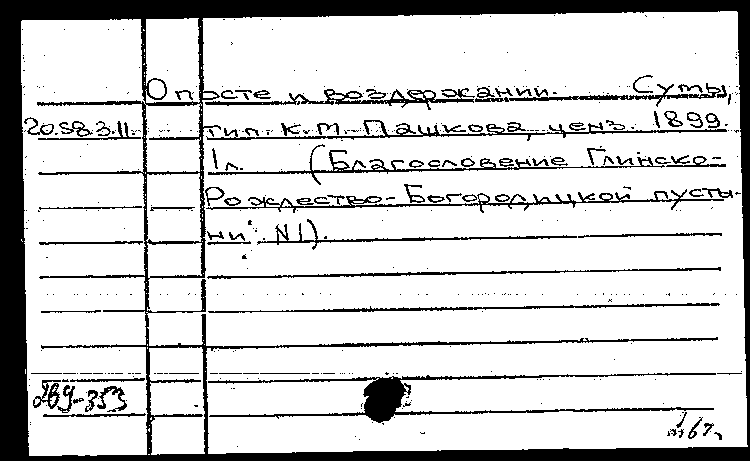 О посте и воздержании. Сумы,
20.58.3.11. тип. К.М. Пашкова, ценз. 1899.
1 л. (Благословение Глинско-
Рождество-Богородицкой пусты-
ни N 1).
269-353